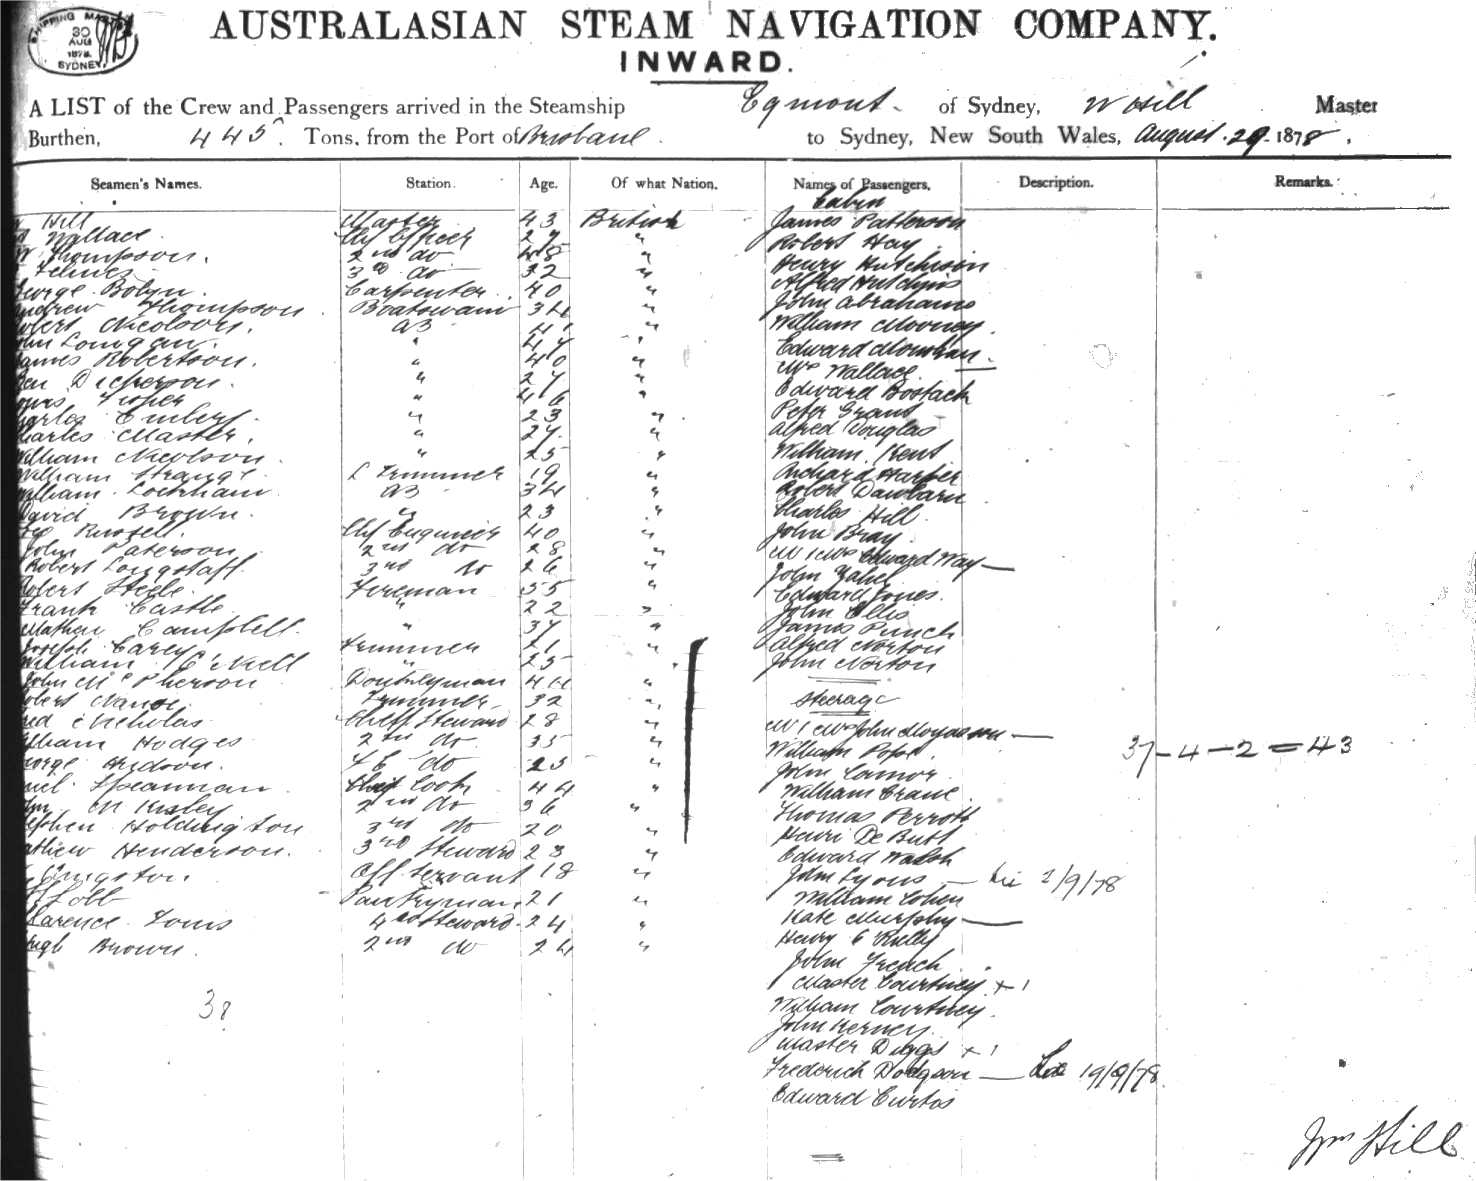 SHIPPING MASTER
30
AUG
1878
SYDNEY
AUSTRALASIAN STEAM NAVIGATION COMPANY.
INWARD.
A LIST of the Crew and Passengers arrived in the Steamship Egmont of Sydney, W Hill Master
Burthen, 445 Tons, from the Port of Brisbane to Sydney, New South Wales, August 29 1878.
Seamen's Names. Station. Age. Of what Nation. Names of Passengers. Description. Remarks.
Cabin
Hill Master 43 British James Patterson
Wallace Chf Officer 27 " Robert Hay
Thompson. 2nd do 48 " Henry Hutchison
3rd do 32 " Alfred Hutchins
George Bolyn. Carpenter 40 " John Abrahams
Andrew Thompson Boatswain 34 " William Mooney
Robert Nicolson. AB " Edward
John " 47 " Mrs Wallace
James Robertson. " 40 " Edward Bostock
Ben Dickerson. " 27 " Peter Grant
" 46 " Alfred Douglas
Charles " 23 " William Kent
Charles Master. " 27. " Richard Harper
William Nicolson " 25 " Robert Dawbarn
William Strange L Trimmer 19 " Charles Hill
William Lockham AB 34 " John Bray
David Brown " 23 " Mr & Mrs Edward Way
Russell Chf Engineer 40 " John
John Paterson 2nd do 28 " Edward Jones.
Robert Longstaff 3rd do 26 " John Ellis
Robert Steele Fireman 35 " James Punch
Frank Castle " 22 " Alfred Norton
Mathew Campbell. " 37 " John Norton
Joseph Carey Trimmer 21 "
William O'Niell " 25 "
John McPherson Donkeyman 44 " Steerage
Robert Nance Trimmer 32 "
Nicholas Chieff Steward 28 " Mr & Mrs John
William Hodges 2nd do 35 " William Pope 37-4-2=43
George Hudson. F C do 25 " John Lamor
Spearman Chief Cook 44 " William Crane
2nd do 36 " Thomas Perrott
Stephen Holdington 3rd do 20 " Henri De Butt
Mathew Henderson. 3rd Steward 23 " Edward Walsh
Off Servant 18 " John Lyons 2/9/78
Lobb Pantryman 21 " William Cohen
Clarence Toms 4th Steward 24 " Kate Murphy
Hugh Brown 2nd do 24 " Henry O Reilly
John French
Master Courtney + 1
38 William Courtney
John Kerney
Master Diggs + 1
Frederick Dodgson 19/9/78
Edward Curtis
Wm Hill